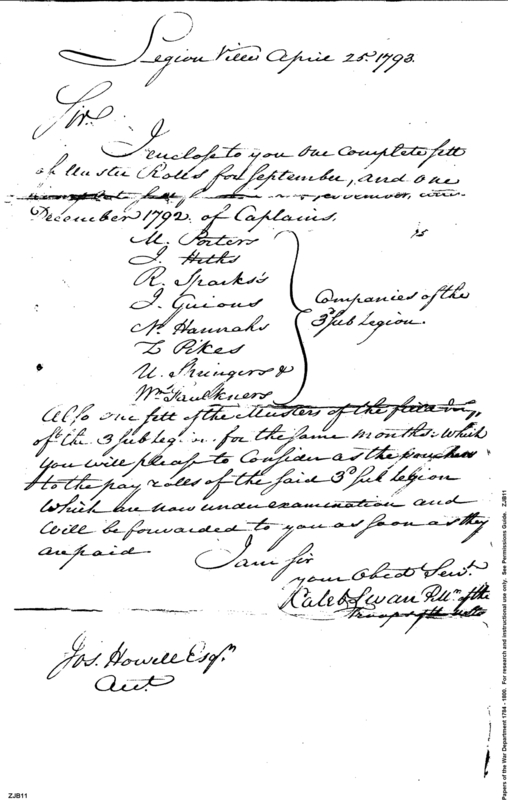 Legion Ville April 25th 1793.
Sir.
I enclose to you One Complete sett
of Muster Rolls for September, and One
December 1792. of Captains,
M. Porters
J. Heths
R. Sparks's
J. Guions
Ns. Hannahs
Z Pikes
U. Springers &
Wm. Faulkners
Companies of the
3d Sub Legion.
Also one sett of the Musters of the field
of the 3 Sub Legion for the same months: which
you will please to Consider as the vouchers
to the pay rolls of the said 3d Sub Legion
which are now under examination and
will be forwarded to you as soon as they
are paid
I am Sir
your Obed Servt.
Caleb Swan P.Mr. of the
troops of the
Jos. Howell Esqr.
Act.
ZJB11
Papers of the War Department 1784 - 1800. For research and instructional use only. See Permissions Guide. ZJB11